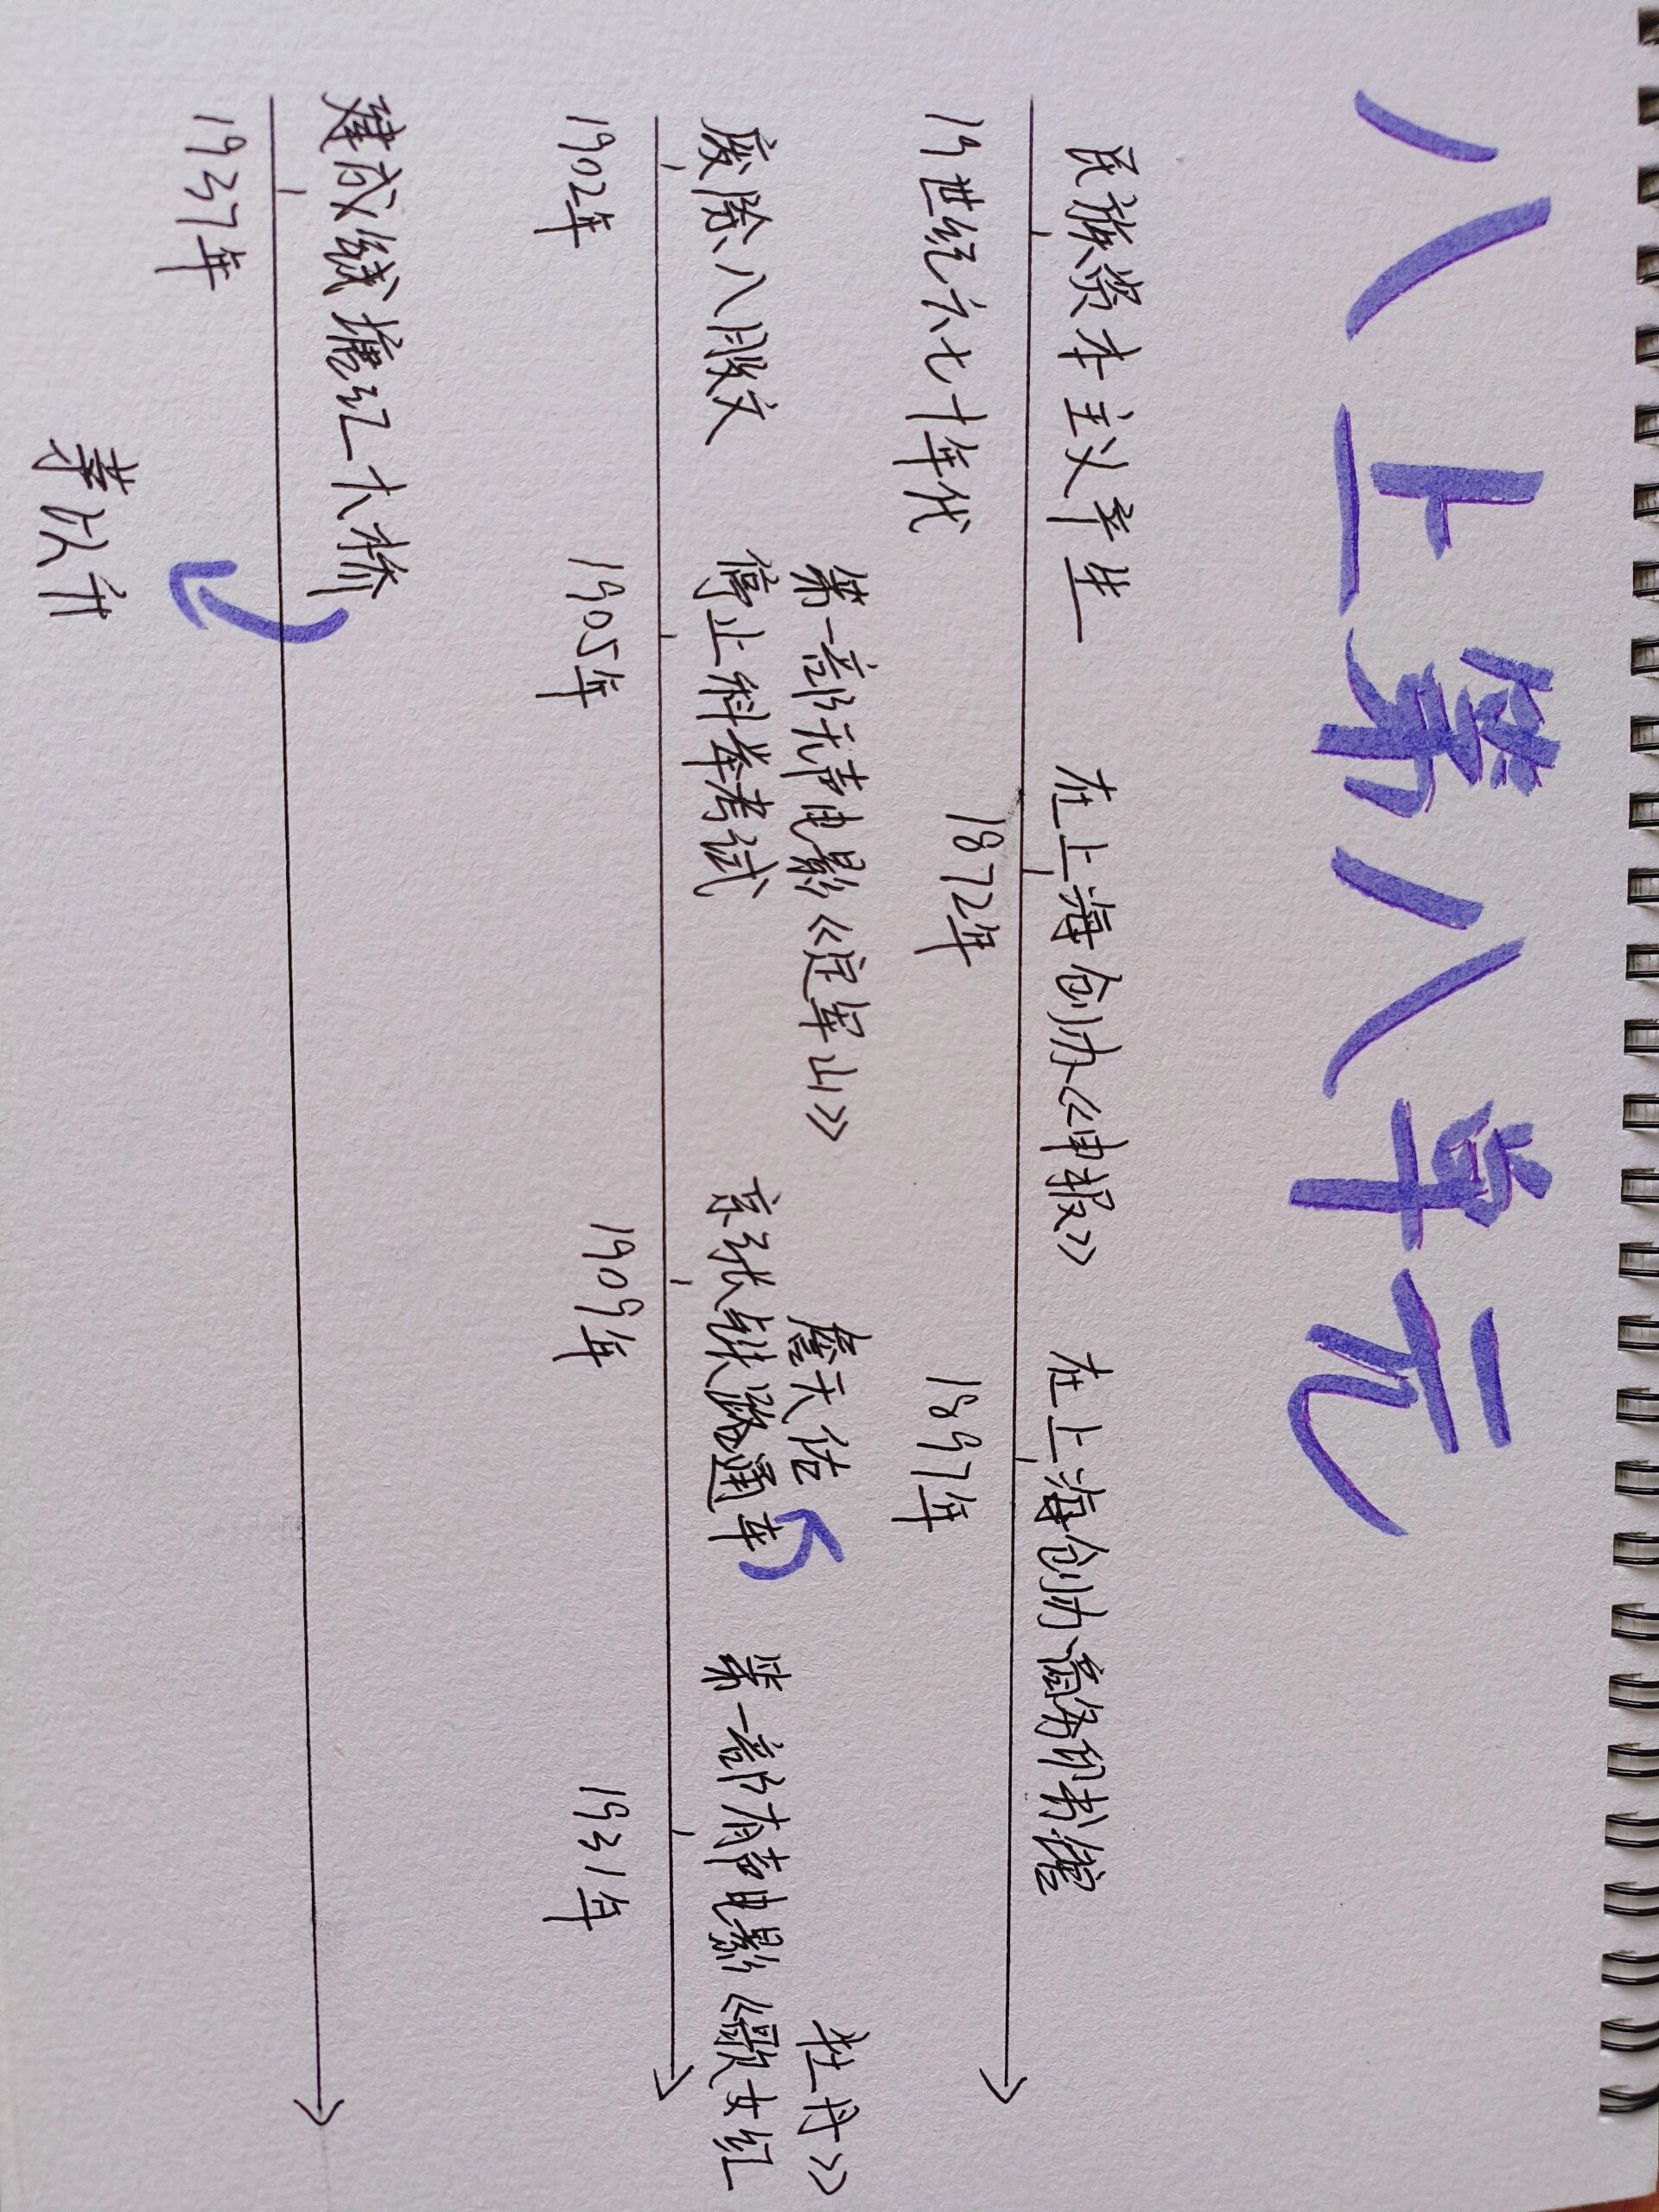 八上第八单元
民族资本主义产生 在上海创办《申报》 在上海创办商务印书馆
19世纪六七十年代 1872年 1897年
第一部无声电影《定军山》 詹天佑 牡丹》
废除八股文 停止科举考试 京张铁路通车 第一部有声电影《歌女红
1902年 1905年 1909年 1931年
建成钱塘江大桥
1937年
茅以升